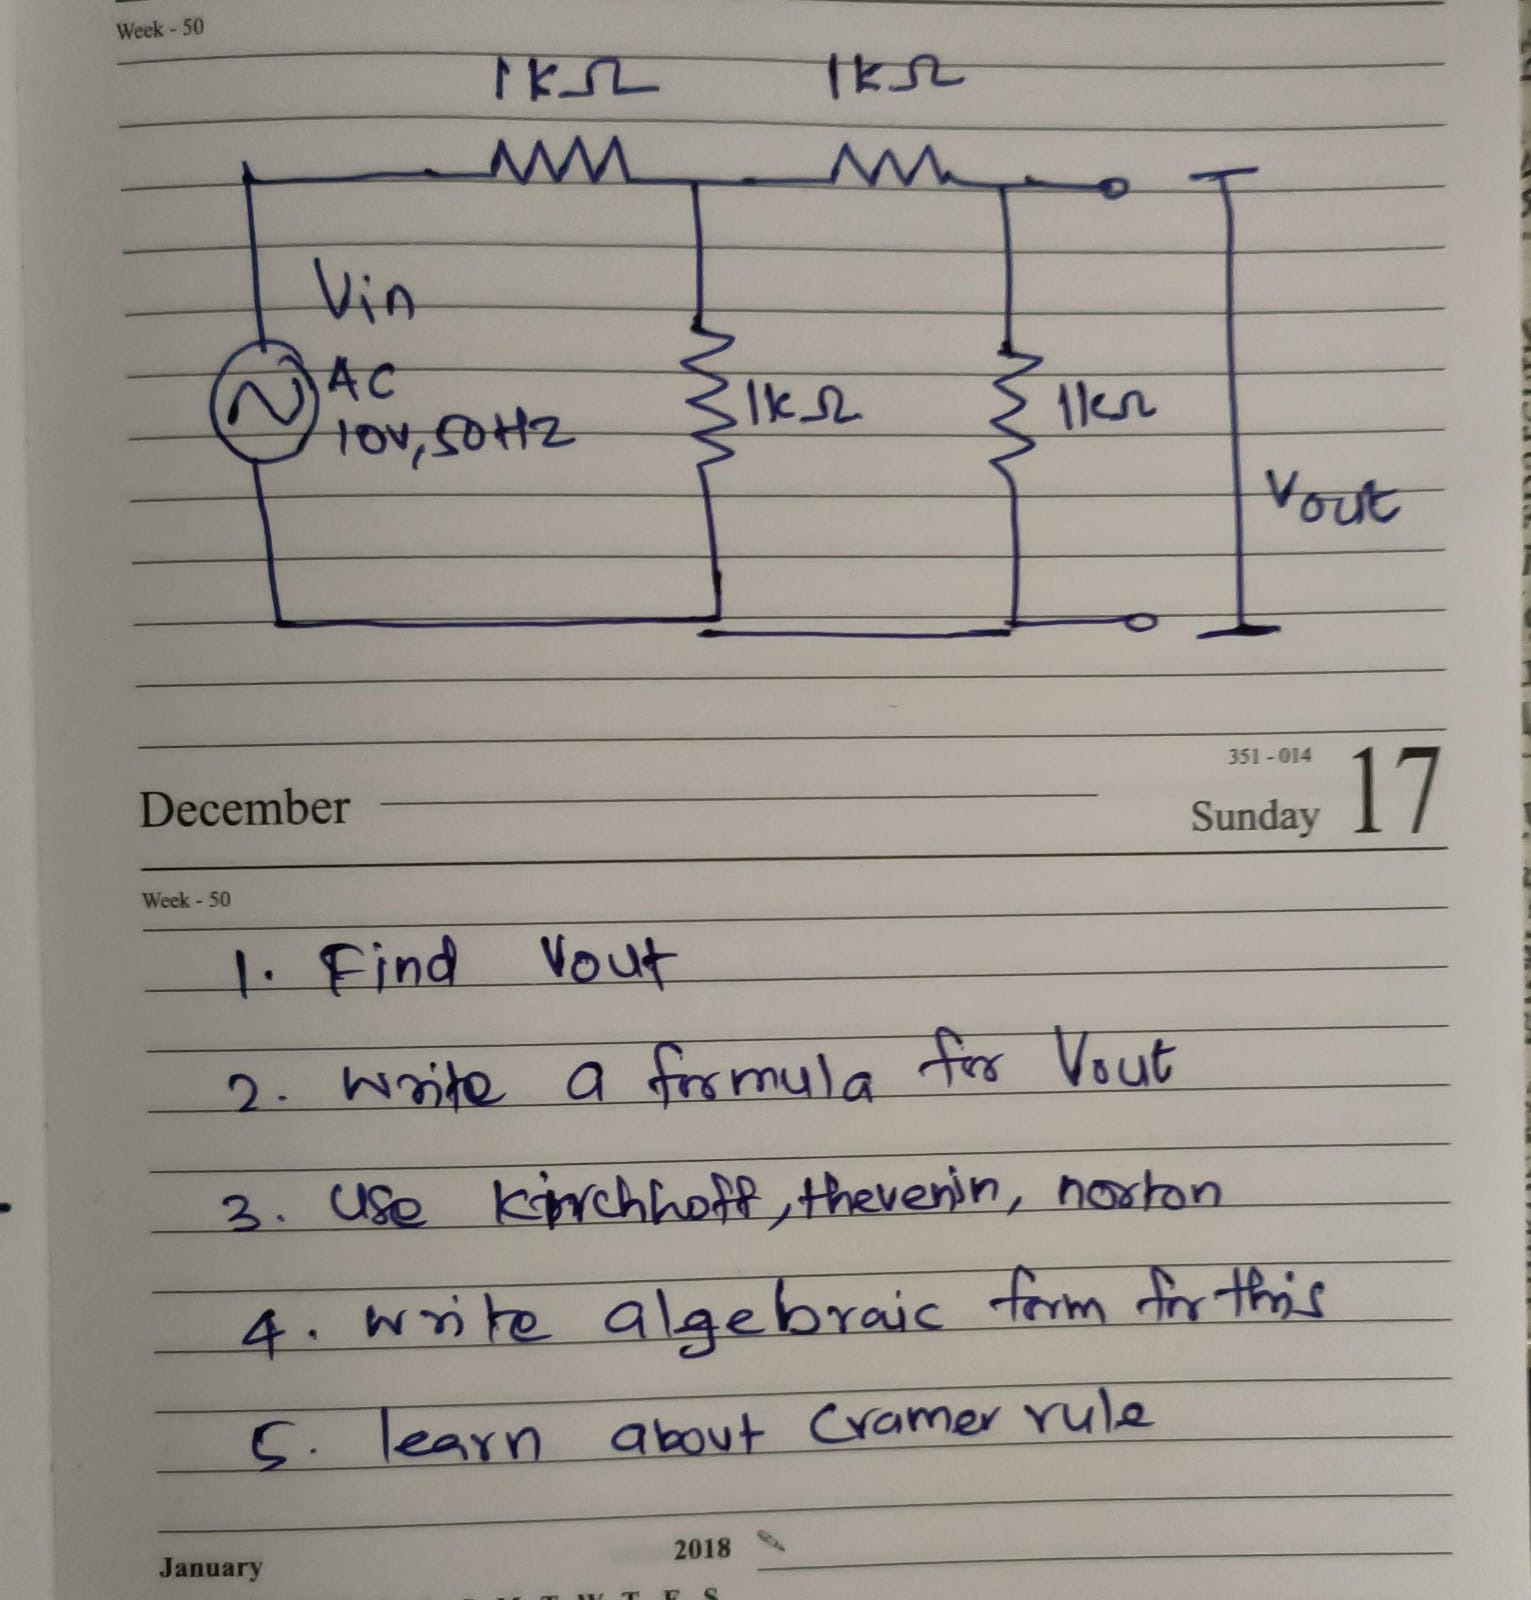 Week - 50
1kΩ 1kΩ
Vin
AC
10V, 50Hz
1kΩ 1kΩ
Vout
351 - 014
December Sunday 17
Week - 50
1. Find Vout
2. Write a formula for Vout
3. Use Kirchhoff, thevenin, norton
4. write algebraic form for this
5. learn about Cramer rule
January 2018
T W T F S